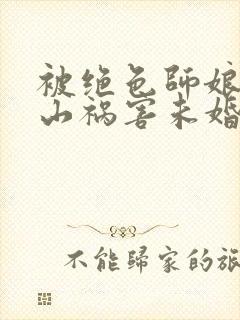 被绝色师娘
山祸害未婚
不能歸家的旅